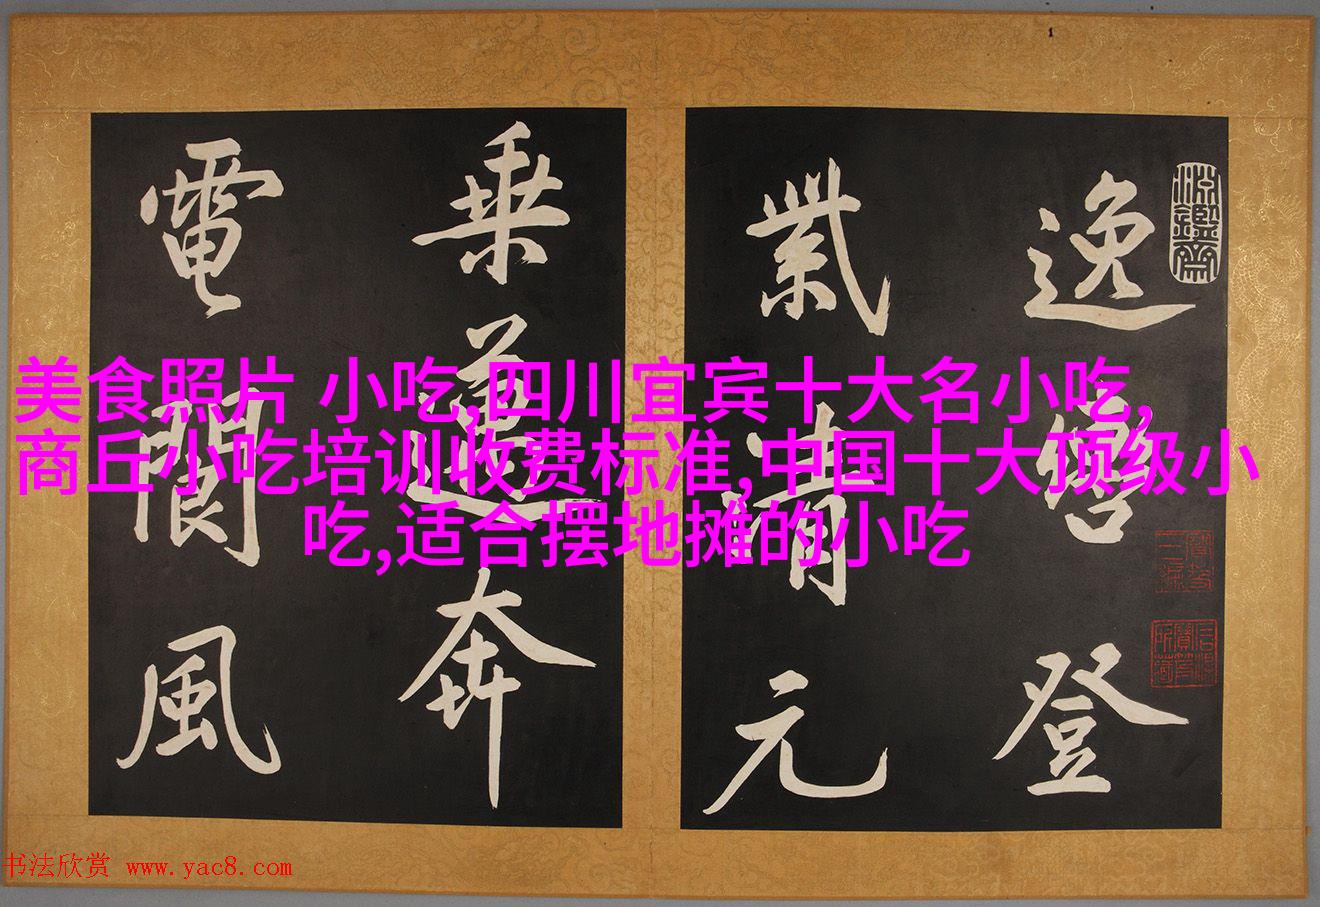 美食照片 小吃,四川宜宾十大名小吃,
商丘小吃培训收费标准,中国十大顶级小
吃,适合摆地摊的小吃
逸
登
紫清元
乘
奔
電閬風
书法欣赏 www.yac8.com